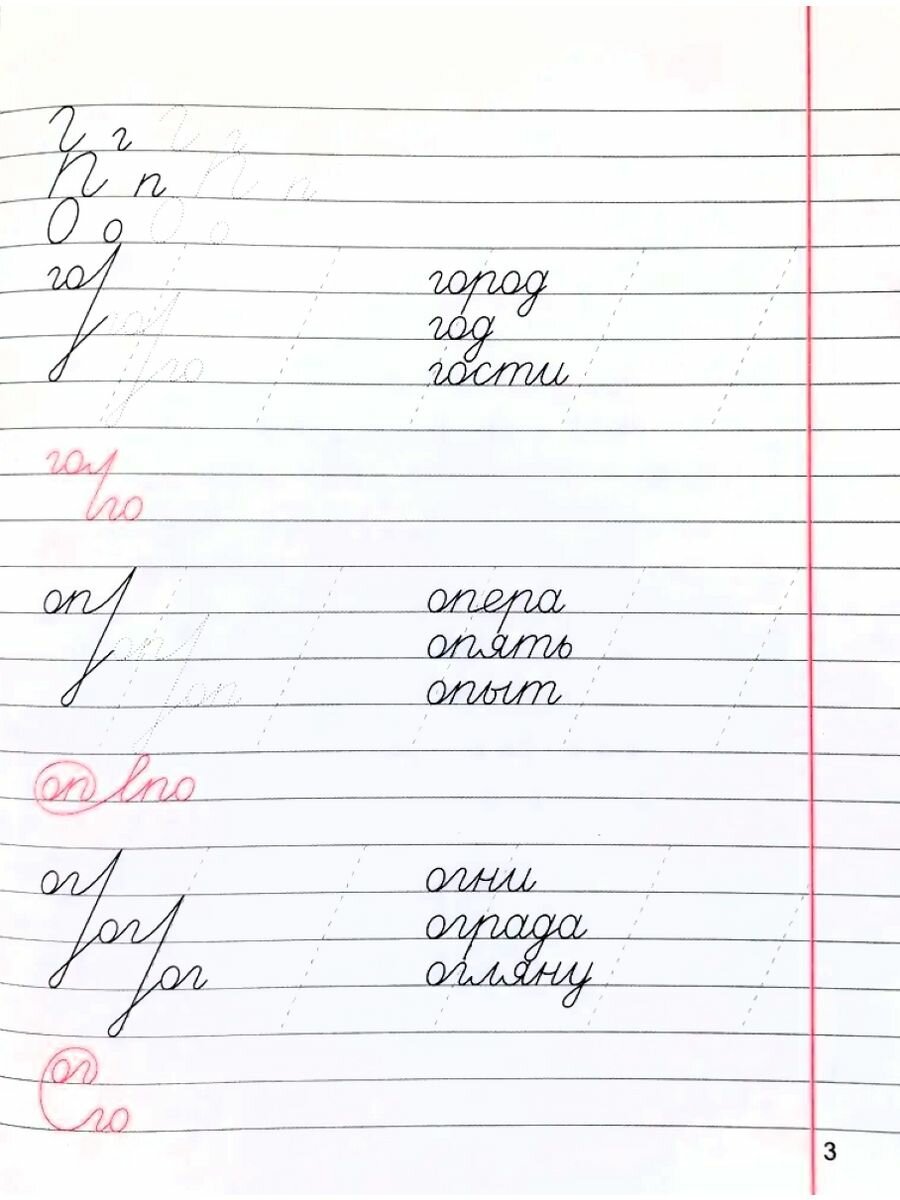 Г г Г г
П п П п
О о О о
го город
го год
го гости
го
го
оп опера
оп опять
оп опыт
оп по
ог огни
ог ограда
ог огляну
ог
го
3